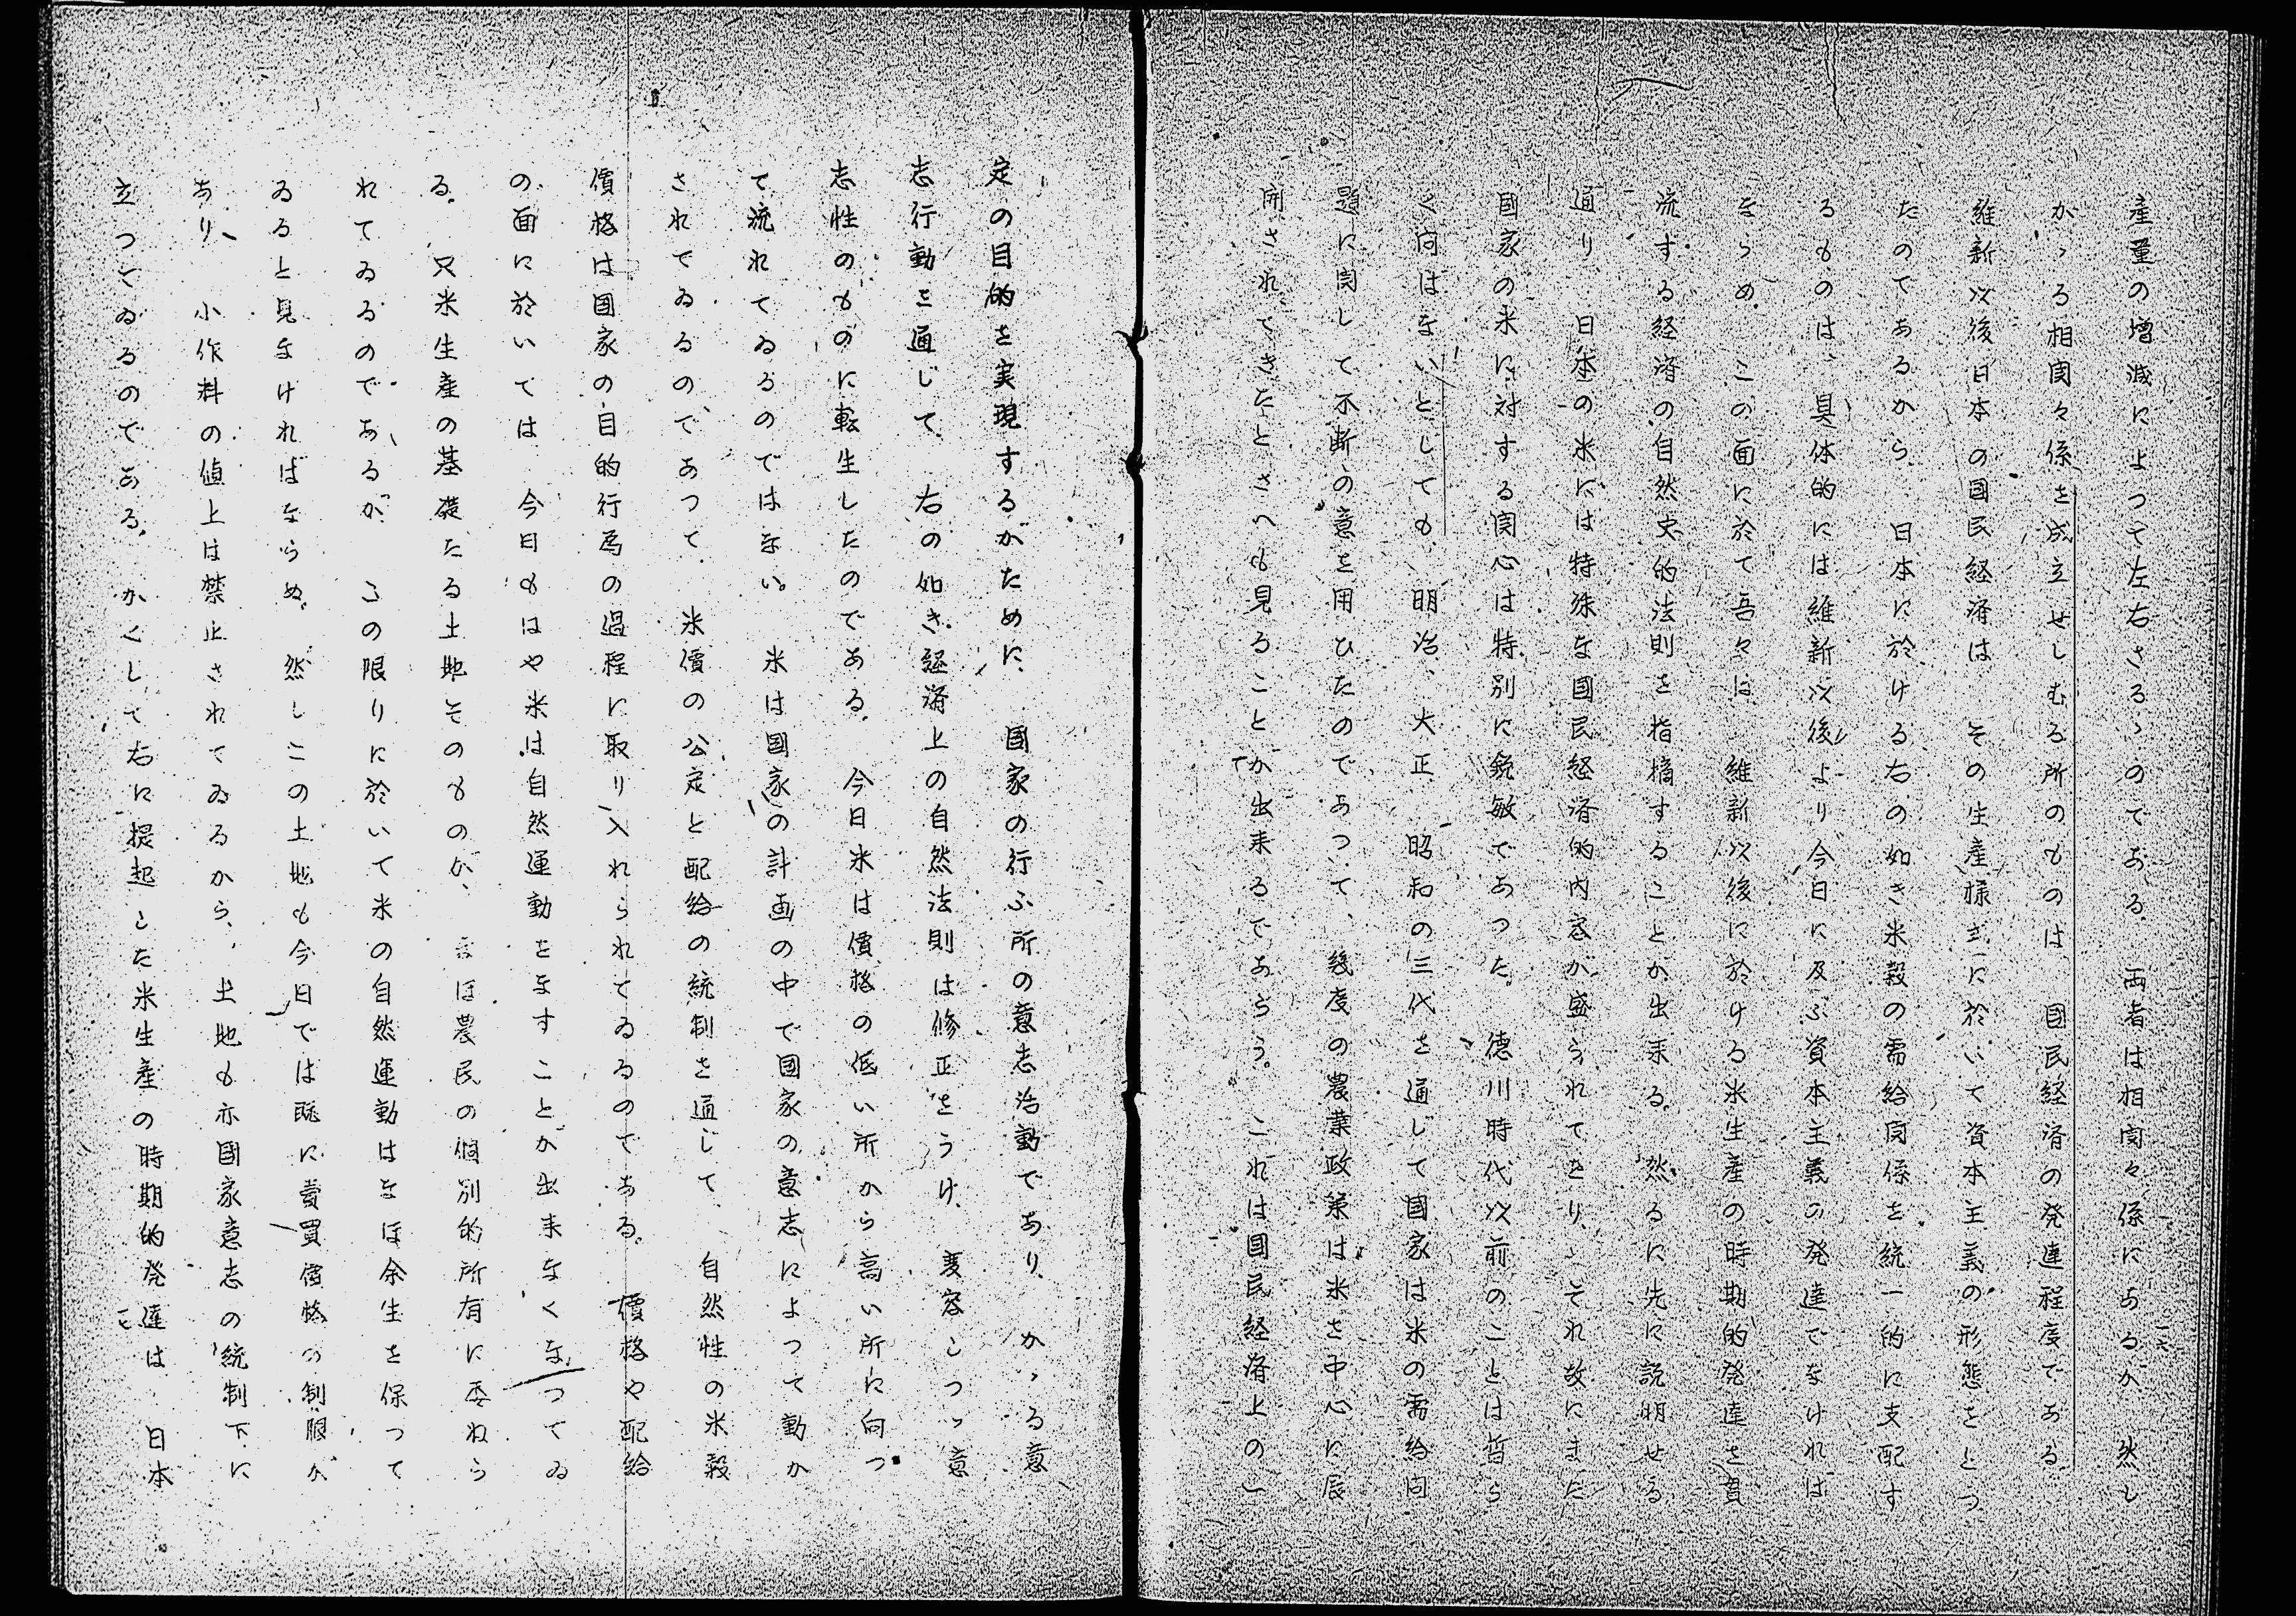 産量の増減によつて左右さるゝのである。両者は相関々係にあるが、然し
かゝる相関々係を成立せしむる所のものは、国民経済の発達程度である。
維新以後日本の国民経済は、その生産様式に於いて資本主義の形態をとつ
たのであるから、日本に於ける右の如き米穀の需給関係を統一的に支配す
るものは、具体的には維新以後より今日に及ぶ資本主義の発達でなければ
ならぬ。この面に於て吾々は、維新以後に於ける米生産の時期的発達を貫
流する経済の自然史的法則を指摘することが出来る。然るに先に説明せる
通り、日本の米には特殊な国民経済的内容が盛られてをり、それ故にまた
國家の米に対する関心は特別に鋭敏であつた。徳川時代以前のことは暫ら
く問はないとしても、明治、大正、昭和の三代を通じて国家は米の需給問
題に関して不断の意を用ひたのであつて、幾度の農業政策は米を中心に展
開されてきたとさへも見ることが出来るであらう。これは国民経済上の一
定の目的を実現するがために、國家の行ふ所の意志活動であり、かゝる意
志行動を通じて、右の如き経済上の自然法則は修正をうけ、変容しつゝ意
志性のものに転生したのである。今日米は價格の低い所から高い所に向つ
て流れてゐるのではない。米は國家の計画の中で国家の意志によつて動か
されてゐるのであつて、米價の公定と配給の統制を通じて、自然性の米穀
價格は国家の目的行為の過程に取り入れられてゐるのである。價格や配給
の面に於いては、今日もはや米は自然運動をなすことが出来なくなつてゐ
る。只米生産の基礎たる土地そのものが、なほ農民の個別的所有に委ねら
れてゐるのであるが、この限りに於いて米の自然運動はなほ余生を保つて
ゐると見なければならぬ。然しこの土地も今日では既に賣買價格の制限が
あり、小作料の値上は禁止されてゐるから、土地も亦國家意志の統制下に
立つてゐるのである。かくして右に提起した米生産の時期的発達は、日本